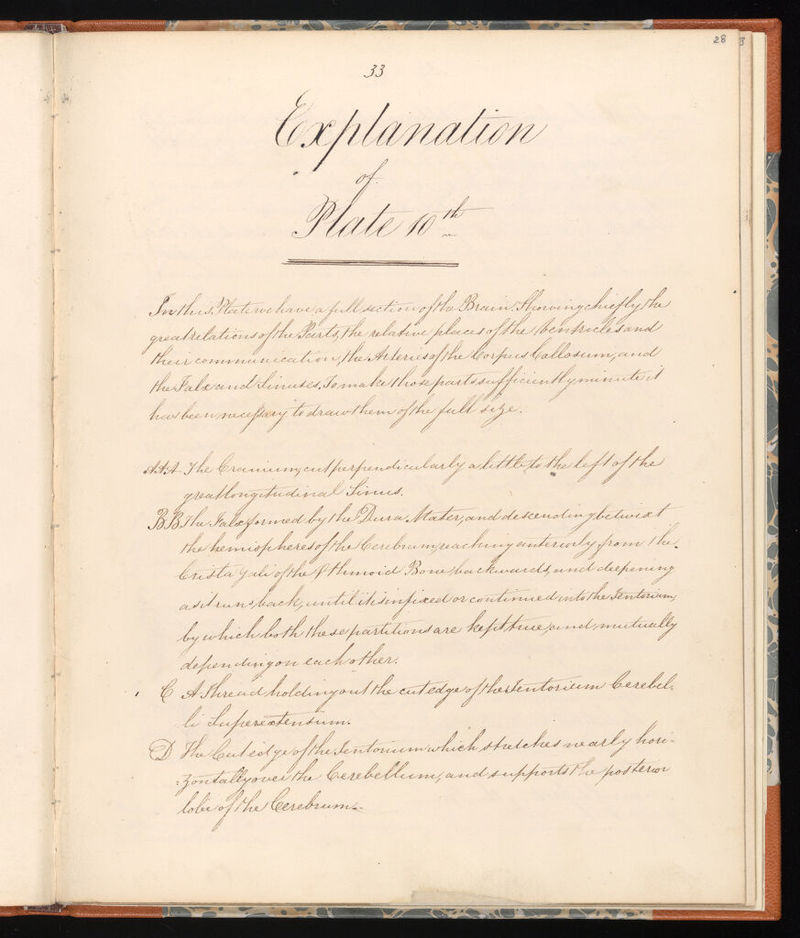 28
33
Explanation
of
Plate 10th
In this Plate we have a full section of the Brain. Showing chiefly the
great relations of the Parts, the relative places of the Ventricles and
their communication, the Arteries of the Corpus Callosum, and
the Falx and Sinuses. To make those parts sufficiently minute it
has been necessary to draw them of the full size.
A.A.A. The Cranium, cut perpendicularly a little to the left of the
great longitudinal Sinus.
B.B The Falx formed by the Dura Mater, and descending betwixt
the hemispheres of the Cerebrum, reaching anteriorly from the
Crista Gali of the Ethmoid Bone, backwards, and deepening
as it runs back, until it is infixed or continued into the Tentorium,
by which both these partitions are kept true, and mutually
depending on each other.
C A Thread holding out the cut edge of the Tentorium Cerebel-
li Superextensum.
D The Cut edge of the Tentorium which stretches nearly hori-
zontally over the Cerebellum, and supports the posterior
lobe of the Cerebrum.-